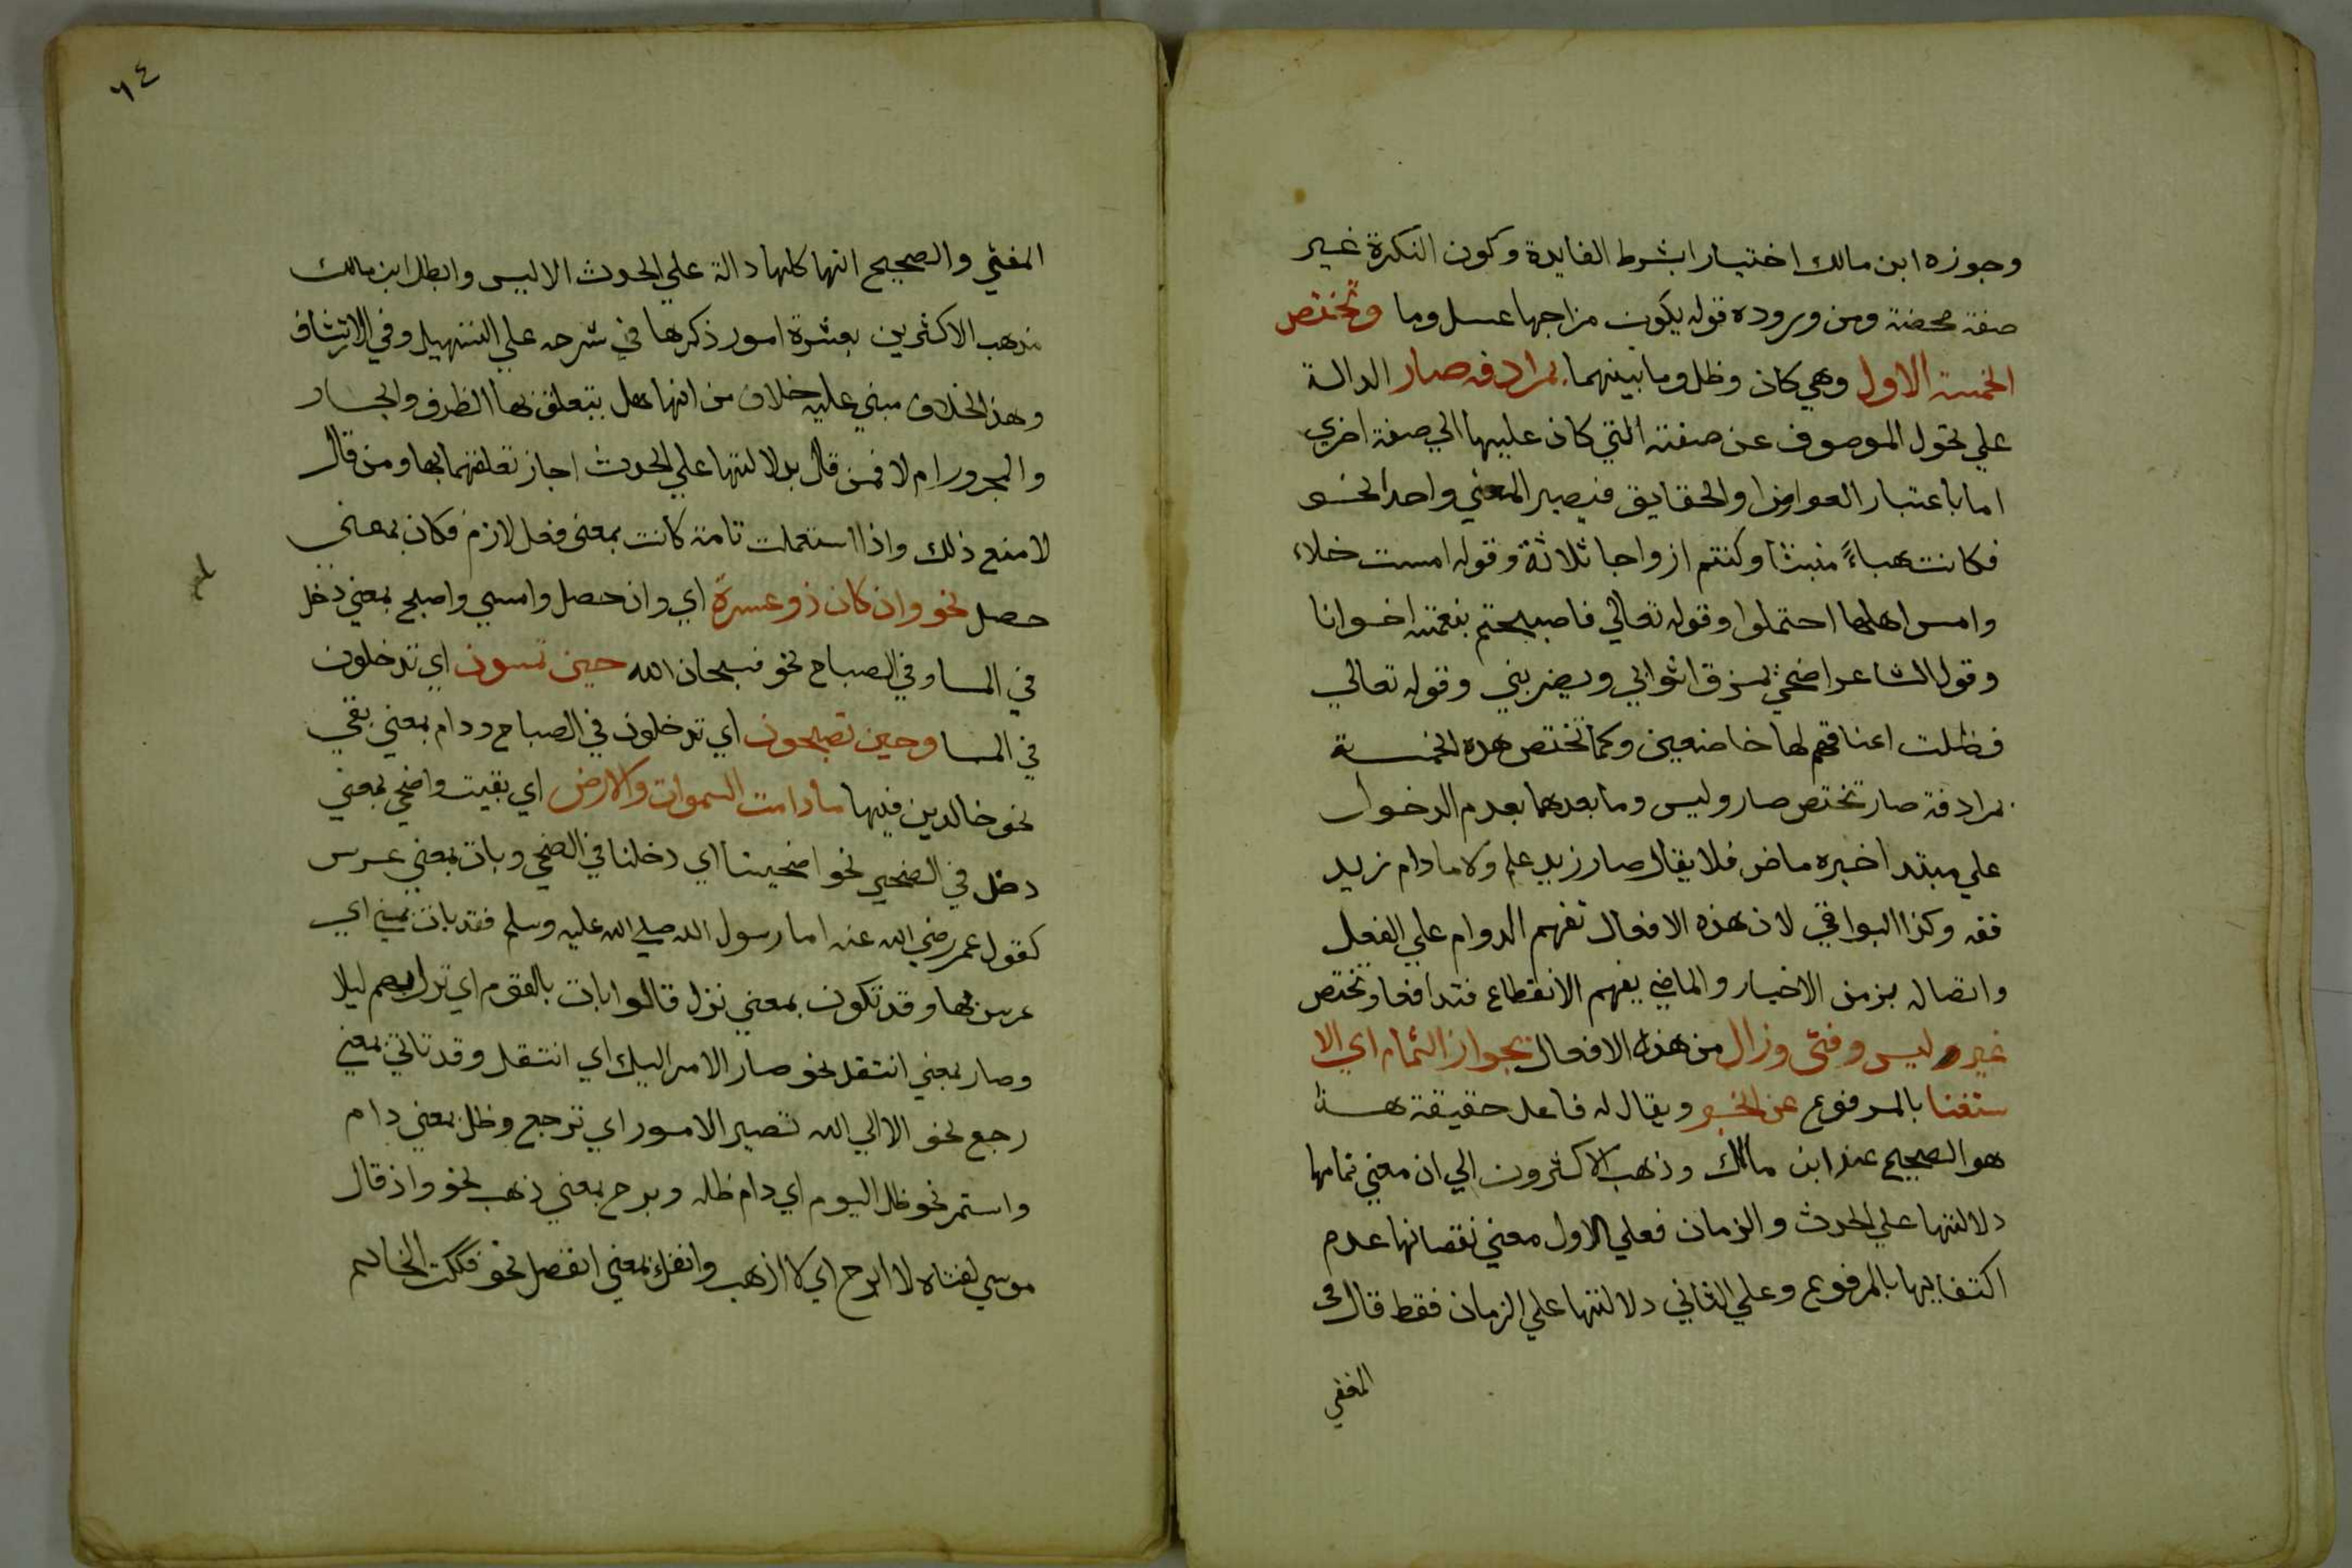 وجوزه ابن مالك اختيارا بشرط الفايدة وكون النكرة غير
صفة محضة ومن وروده قوله يكون مزاجها عسل وما وتختص
الخمسة الاول وهي كان وظل وما بينهما بمرادفه صار الدالة
علي تحول الموصوف عن صفته التي كان عليها الي صفة اخري
اما باعتبار العوارض او الحقايق فيصير المعني واحدا نحو
فكانت هباءً منبثا وكنتم ازواجا ثلاثة وقوله امست خلاء
وامس اهلها احتملوا وقوله تعالي فاصبحتم بنعمته اخوانا
وقول الشاعر اضحي يمزق اثوابي ويضربني وقوله تعالي
فظلت اعناقهم لها خاضعين وكما تختص هذه الخمسة
بمرادفة صار تختص صار وليس وما بعدهما بعدم الدخول
علي مبتدا خبره ماض فلا يقال صار زيد علم ولا ما دام زيد
فقه وكذا البواقي لان هذه الافعال تفهم الدوام علي الفعل
واتصاله بزمن الاخبار والماضي يفهم الانقطاع فتدافعا وتختص
غير ليس وفتئ وزال من هذه الافعال بجواز التمام اي الا
ستغنا بالمرفوع عن الخبر ويقال له فاعل حقيقة هذا
هو الصحيح عند ابن مالك وذهب الاكثرون الي ان معني تمامها
دلالتها علي الحدث والزمان فعلي الاول معني نقصانها عدم
اكتفايها بالمرفوع وعلي الثاني دلالتها علي الزمان فقط قال في
المغني
٦٤
المغني والصحيح انها كلها دالة علي الحدث الا ليس وابطل ابن مالك
مذهب الاكثرين بعشرة امور ذكرها في شرحه علي التسهيل وفي الارتشاف
وهذا الخلاف مبني عليه خلاف من انها هل يتعلق بها الظرف والجار
والمجرور ام لا فمن قال بدلالتها علي الحدث اجاز تعلقهما بها ومن قال
لا منع ذلك واذا استعملت تامة كانت بمعني فعل لازم فكان بمعني
حصل نحو وان كان ذو عسرة اي وان حصل وامسي واصبح بمعني دخل
في المسا وفي الصباح نحو فسبحان الله حين تمسون اي تدخلون
في المسا وحين تصبحون اي تدخلون في الصباح ودام بمعني بقي
نحو خالدين فيها ما دامت السموات والارض اي بقيت واضحي بمعني
دخل في الضحي نحو اضحينا اي دخلنا في الضحي وبات بمعني عرس
كقول عمر رضي الله عنه اما رسول الله صلي الله عليه وسلم فقد بات بمني اي
عرس بها وقد تكون بمعني نزل قالوا بات بالقوم اي نزل بهم ليلا
وصار بمعني انتقل نحو صار الامر اليك اي انتقل وقد تاتي بمعني
رجع نحو الا الي الله تصير الامور اي ترجع وظل بمعني دام
واستمر نحو ظل اليوم اي دام ظله وبرح بمعني ذهب نحو واذ قال
موسي لفتاه لا ابرح اي لا اذهب وانفك بمعني انفصل نحو فككت الخاتم